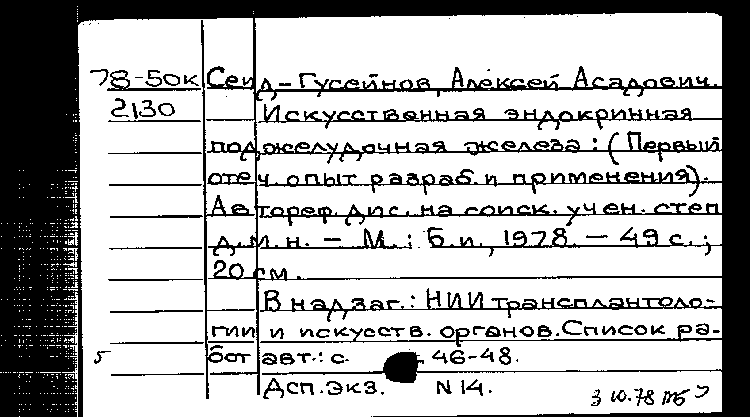 78-50к Сеид-Гусейнов, Алексей Асадович.
2130 Искусственная эндокринная
поджелудочная железа: (Первый
отеч. опыт разраб. и применения).
Автореф. дис. на соиск. учен. степ
д.м.н. – М.: Б.и., 1978. – 49 с.;
20 см.
В надзаг.: НИИ трансплантоло-
гии и искусств. органов. Список ра-
5 бот авт.: с. 46-48.
Дсп. экз. N 14.
3 10.78